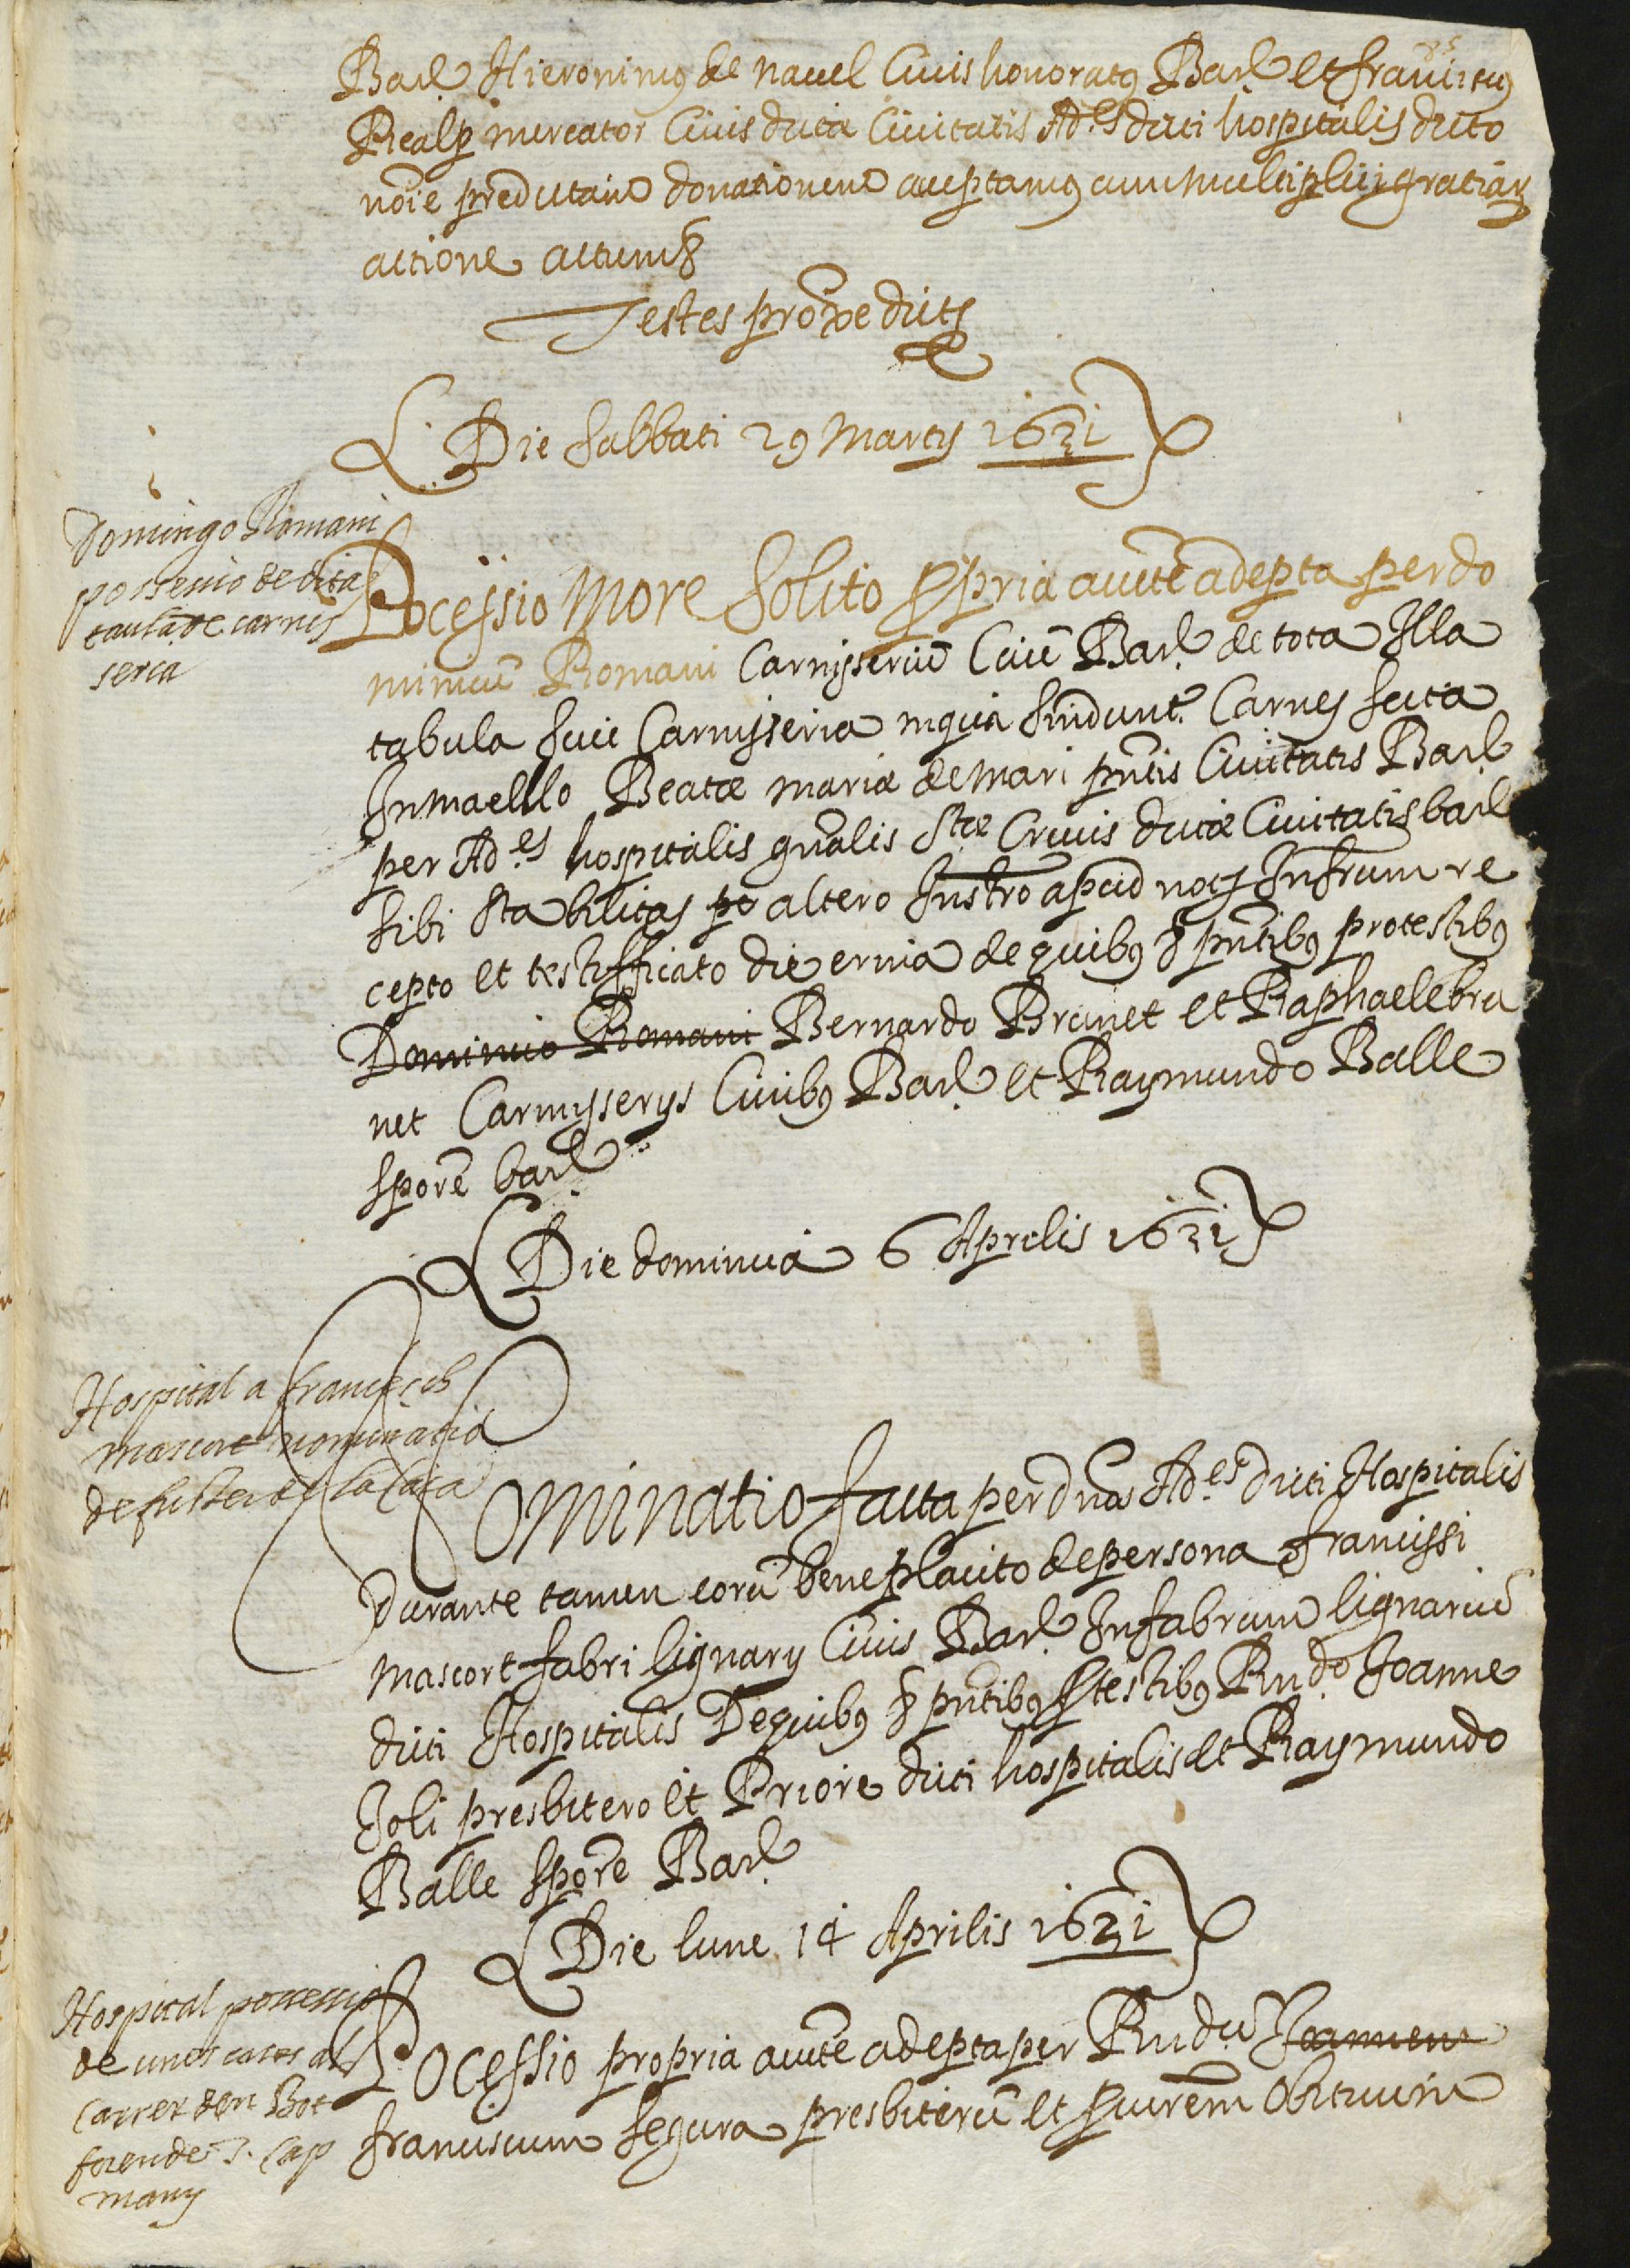 Barl Hieronimus de navel Civis honoratus Barl et franc.cus
Realp mercator Civis dictæ Civitatis Ad.es dicti hospitalis dicto
noīe predictam donationem acceptamus cum multiplici gratiar
actione actum &
Testes proxe dicts
Die sabbati 29 Martij 1631
Domingo Romani
possessio de dita
taula de carnis
seria
Pocessio More Solito propria aucte adepta per do
minicū Romani Carnisseriū Civē Barl de tota Illa
tabula sive Carnisseria in qua sindunt.r Carnes scita
In maelllo Beatæ mariæ de Mari pntis Civitatis Barl
per Ad.es hospitalis gnalis Stæ Crucis dictæ Civitatis barl
sibi stabilitas po altero Instro apud nots Infrum re
cepto et testifficato die erna de quibus & pntibus pro testibus
Dominico Romani Bernardo Brunet et Raphaele bru
net Carnysserys Civibus Barl et Raymundo Balle
sporē barl
Die dominica 6 Aprilis 1631
Hospital a francesch
mascort nominatio
de fuster de la Casa
Nominatio facta per dnos Ad.es dicti Hospitalis
durante tamen eorū beneplacito de persona francissi
mascort fabri lignarij Civis Barl In fabrum lignariū
dicti Hospitalis De quibus & pntibus p testibus Rnd.o Joanne
Joli presbitero et Priore dicti hospitalis et Raymundo
Balle sporē Barl
Die lune 14 Aprilis 1631
Hospital possessio
de unes cases al
Carrer den Bot
foren de J. Cap
many
Pocessio propria aucte adepta per Rndū Joannem
franciscum segura presbiterū et procurem obituum